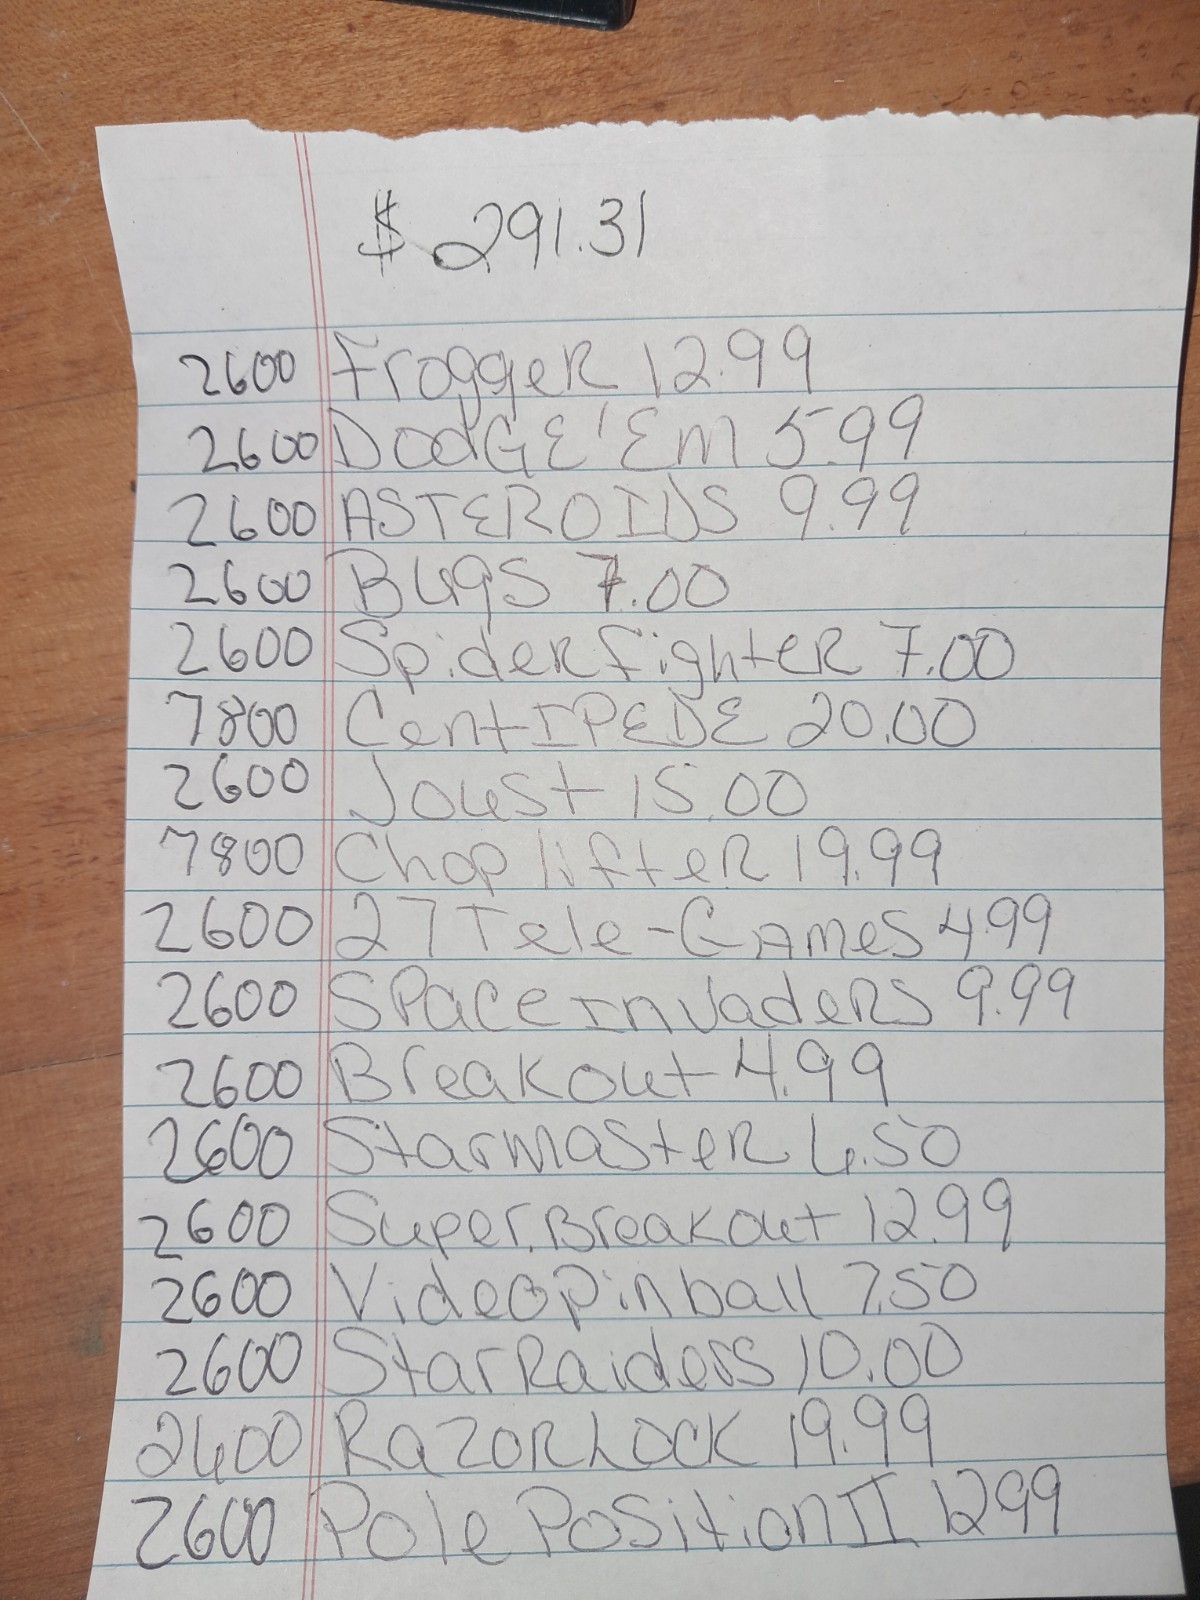 $ 291.31
2600 Frogger 12.99
2600 Dodge'Em 5.99
2600 ASTEROIDS 9.99
2600 Bugs 7.00
2600 Spider fighter 7.00
7800 CentIPEDE 20.00
2600 Joust 15.00
7800 Chop lifter 19.99
2600 27 Tele-Games 4.99
2600 Space Invaders 9.99
2600 Breakout 4.99
2600 Starmaster 6.50
2600 Super Breakout 12.99
2600 Video pinball 7.50
2600 Star Raiders 10.00
2600 Razor Lock 19.99
2600 Pole Position II 12.99